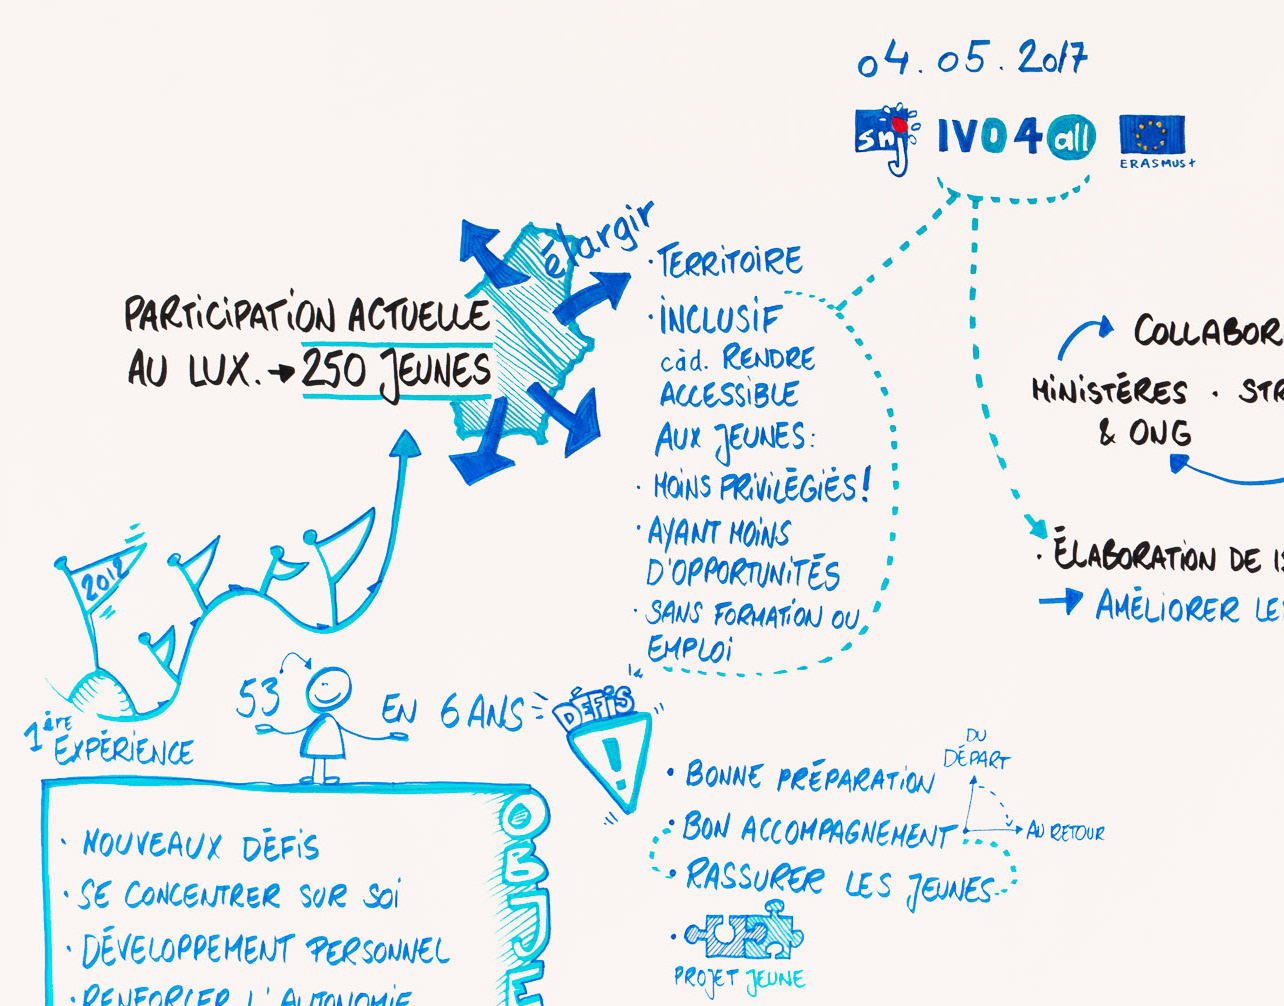 04.05.2017
snj IVO4all
ERASMUS+
élargir
PARTICIPATION ACTUELLE
AU LUX. → 250 JEUNES
· TERRITOIRE
· INCLUSIF
càd. RENDRE
ACCESSIBLE
AUX JEUNES:
· MOINS PRIVILÉGIÉS!
· AYANT MOINS
D'OPPORTUNITÉS
· SANS FORMATION OU
EMPLOI
COLLABOR
MINISTÈRES · STR
& ONG
· ÉLABORATION DE
→ AMÉLIORER LES
2012
1ère
EXPÉRIENCE
53 EN 6 ANS
DÉFIS
!
· BONNE PRÉPARATION
· BON ACCOMPAGNEMENT
DU
DÉPART
AU RETOUR
· RASSURER LES JEUNES
· PROJET JEUNE
OBJE
· NOUVEAUX DÉFIS
· SE CONCENTRER SUR SOI
· DÉVELOPPEMENT PERSONNEL
· RENFORCER L'AUTONOMIE